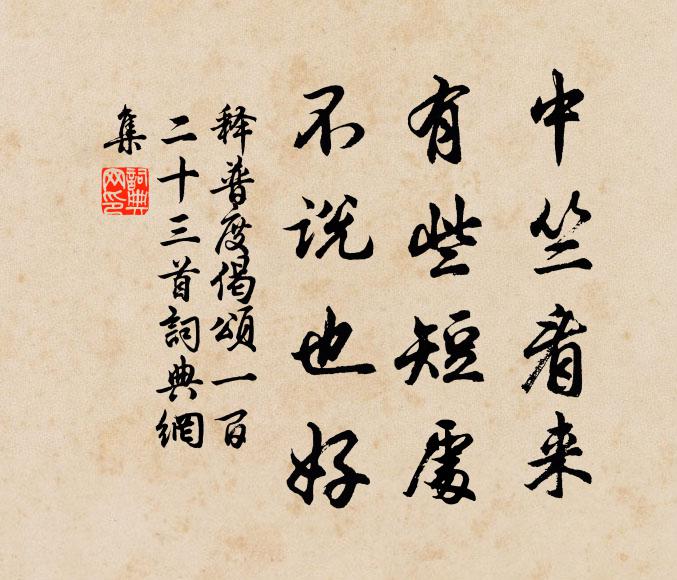 中竺看来
有些短處
不说也好
释普度偈頌一百
二十三首詞典網
集
詞典
网印